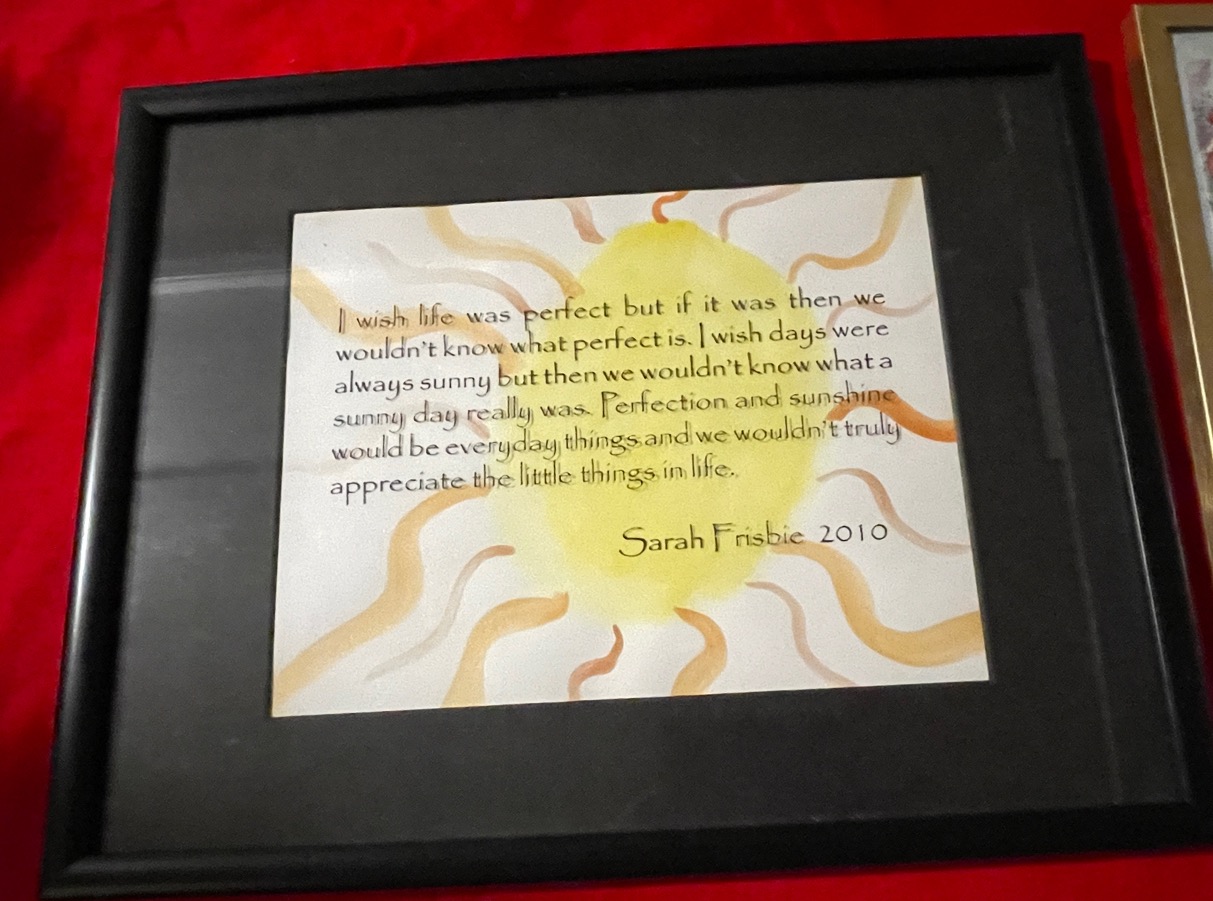 I wish life was perfect but if it was then we
wouldn't know what perfect is. I wish days were
always sunny but then we wouldn't know what a
sunny day really was. Perfection and sunshine
would be everyday things and we wouldn't truly
appreciate the little things in life.
Sarah Frisbie 2010